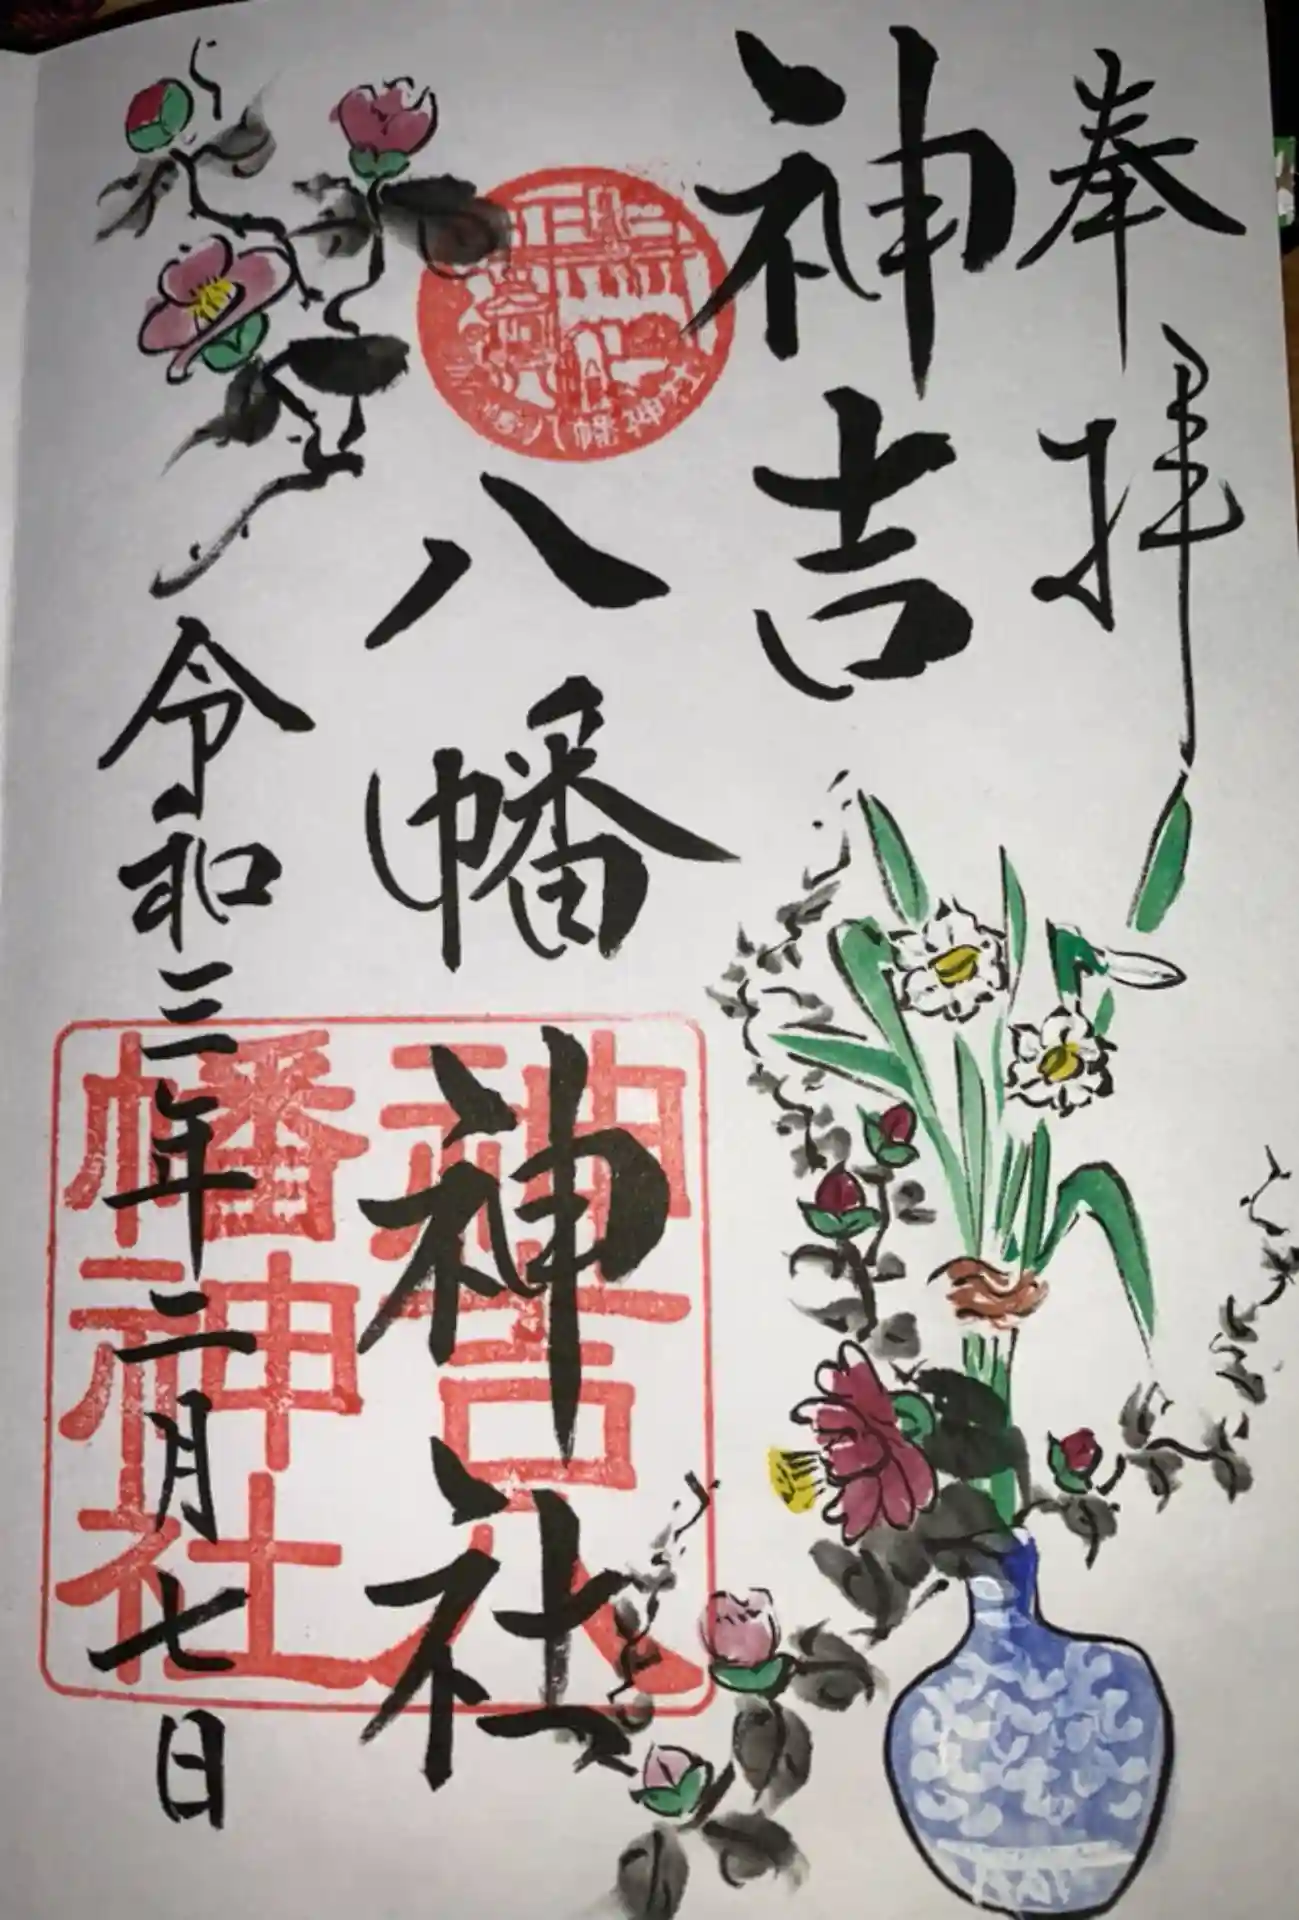 奉拝
神吉
八幡
神社
令和三年二月七日
八幡神社
神吉八
幡神社